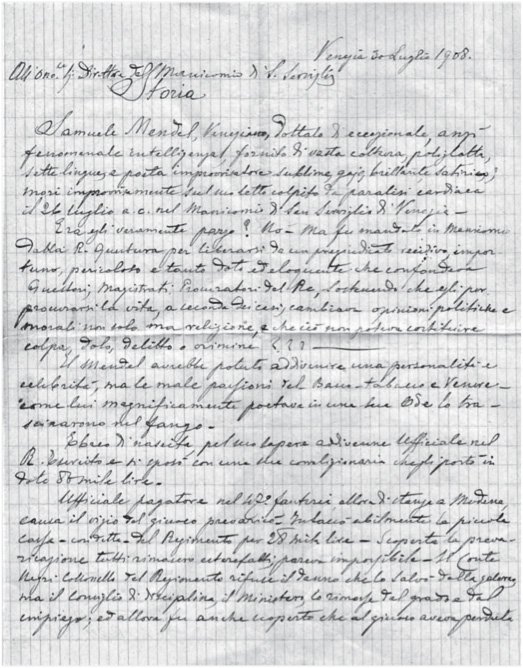 Venezia 30 Luglio 1908.
All'Ono. Sig. Direttore del Manicomio di S. Serviglio
Storia
Samuele Mendel, Veneziano, dottato di eccezionale, anzi
fenomenale intelligenza, fornito di vasta coltura, poliglotta,
sette lingue, e poeta improvvisatore sublime, gajo, brillante satirico;
morì improvvisamente sul suo letto colpito da paralisi cardiaca
il 26 luglio a. c. nel Manicomio di San Servilio di Venezia –
Era egli veramente pazzo? No – Ma fu mandato in Manicomio
dalla R. Questura per liberarsi da un pregiudicato recidivo, impor-
tuno, pericoloso e tanto dotto ed eloquente che confondeva
Questori, Magistrati Procuratori del Re, sostenendo che egli per
procurarsi la vita, a seconda dei casi, cambiava opinioni politiche e
morali non solo ma religione, e che ciò non poteva costituire
colpa, dolo, delitto o crimine ???
Il Mendel avrebbe potuto addivenire una personalità e
celebrità, ma le male passioni del Bacco – tabacco e Venere –
come lui magnificamente poetava in una sua Ode lo tra-
scinarono nel fango –
Ebreo di nascita pel suo sapere addivenne Ufficiale nel
R. Esercito e si sposò con una sua correligionaria che gli portò in
dote 80 mile lire.
Ufficiale pagatore nel 47° fanteria allora di stanza a Modena,
causa il vizio del giuoco prevaricò. Intaccò abilmente la piccola
cassa – così detta del Regimento per 28 mile lire – Scoperta la preva-
ricazione tutti rimasero esterefatti, pareva impossibile – Il Conte
Negri Collonello del Regimento rifuse il danno che lo salvò dalla galera,
ma il Consiglio di disciplina, il Ministero, lo rimosse dal grado e dal
impiego; ed allora fu anche scoperto che al giuoco aveva perduta